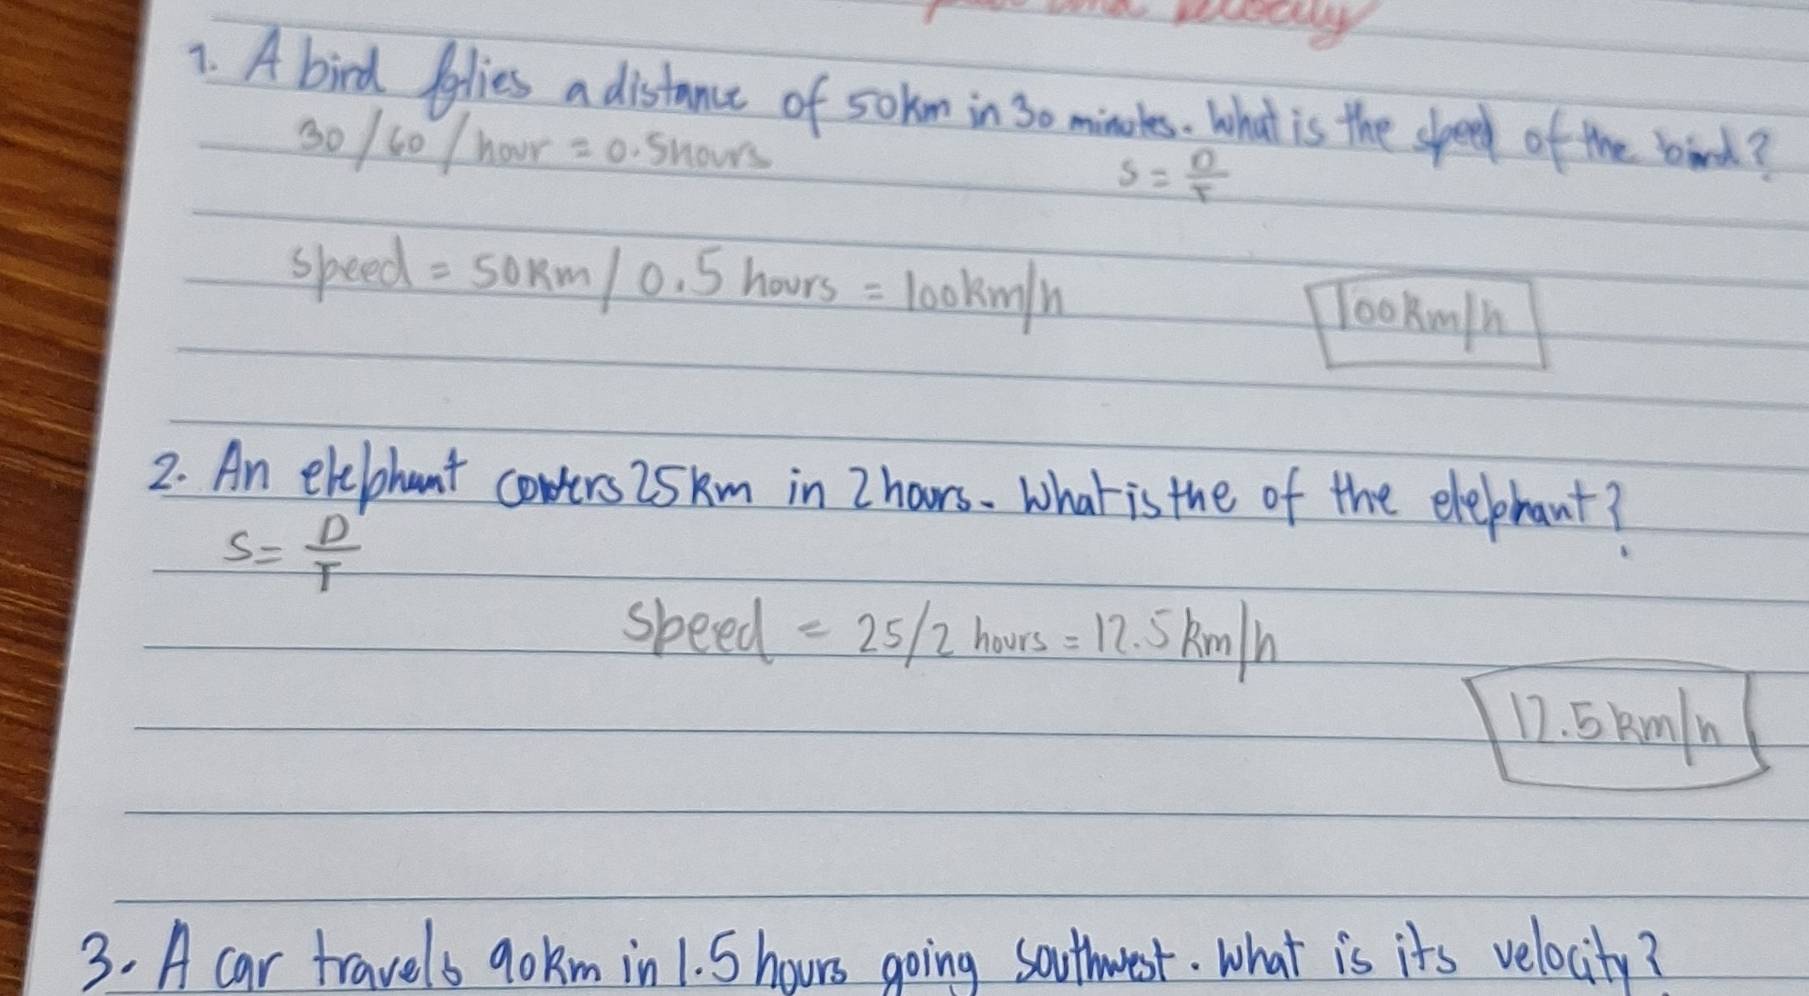 velocity
1. A bird flies a distance of 50km in 30 minutes. What is the speed of the bird?
30/60/hour = 0.5hours
S = D/T
speed = 50km/0.5 hours = 100km/h
100km/h
2. An elephant covers 25km in 2 hours. What is the of the elephant?
S = D/T
speed = 25/2 hours = 12.5km/h
12.5km/h
3. A car travels 90km in 1.5 hours going southwest. What is its velocity?